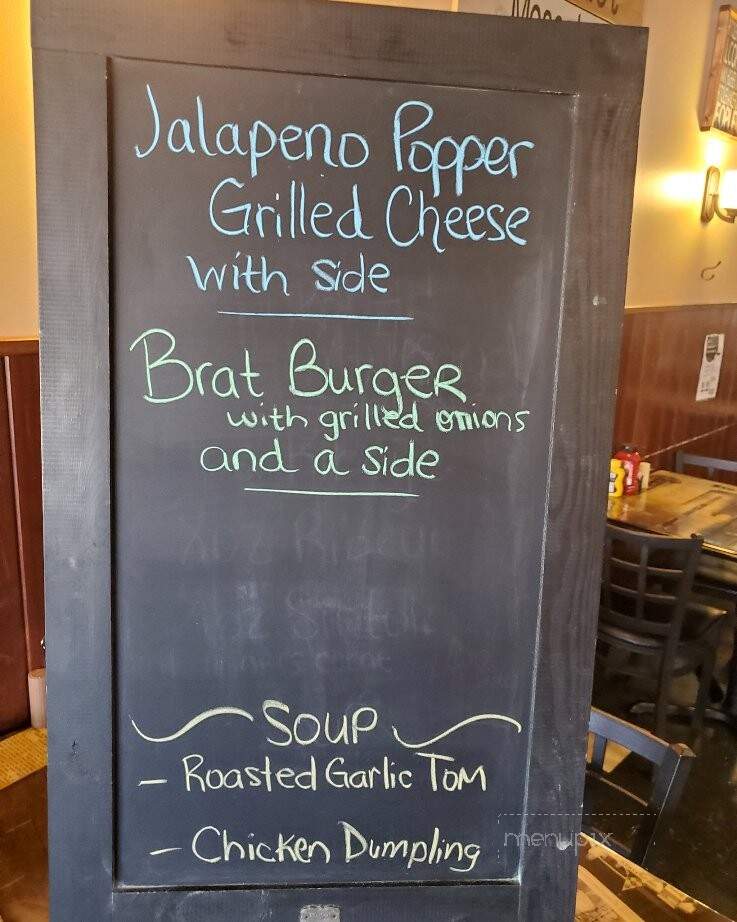 Jalapeno Popper
Grilled Cheese
with side
Brat Burger
with grilled onions
and a side
SOUP
- Roasted Garlic Tom
- Chicken Dumpling
menupix